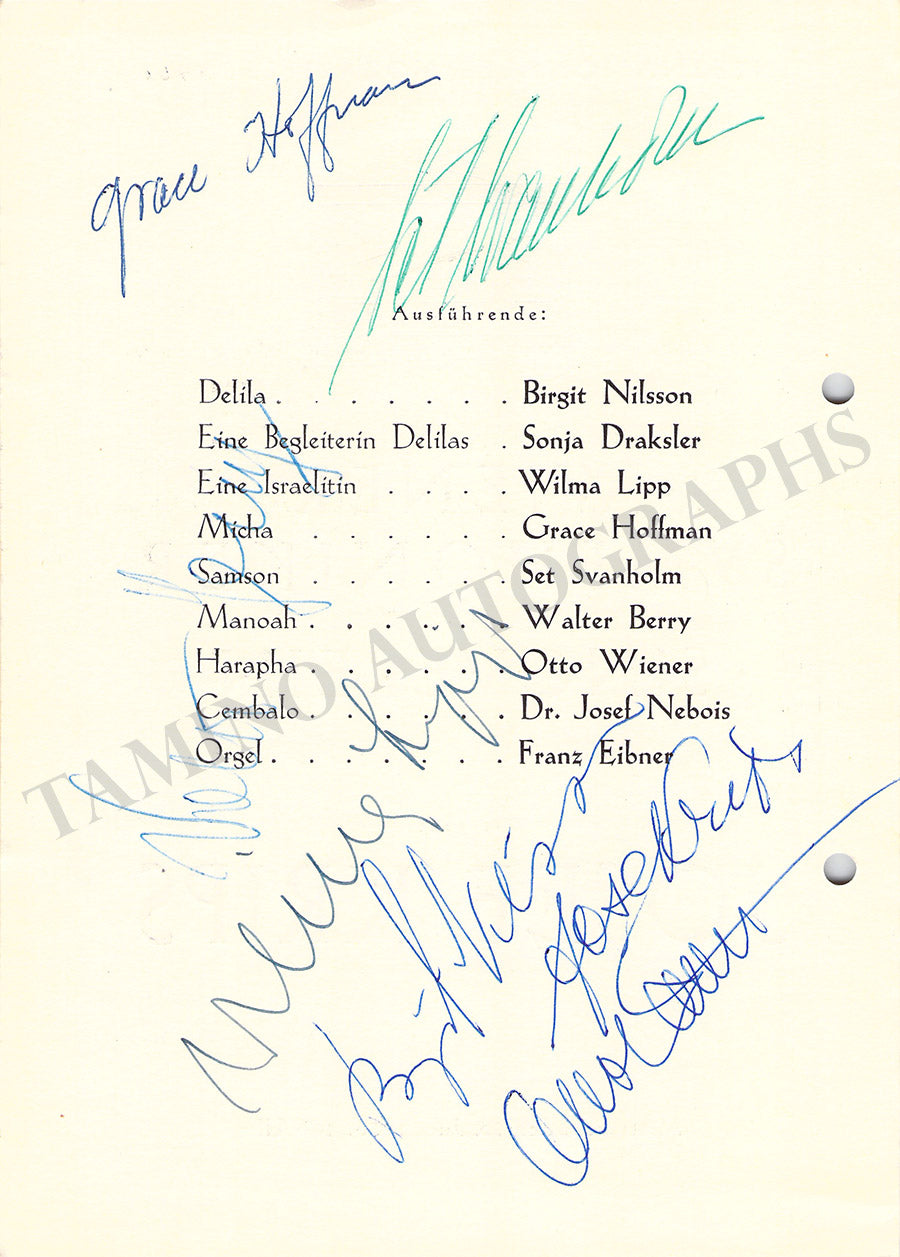 Grace Hoffman
Set Svanholm
Ausführende:
Delila . . . . . . . Birgit Nilsson
Eine Begleiterin Delilas . Sonja Draksler
Eine Israelitin . . . . Wilma Lipp
Micha . . . . . . Grace Hoffman
Samson . . . . . . Set Svanholm
Manoah . . . . . . Walter Berry
Harapha . . . . . . Otto Wiener
Cembalo . . . . . . Dr. Josef Nebois
Orgel . . . . . . . Franz Eibner
Walter Berry
Wilma Lipp
Birgit Nilsson
Otto Wiener
TAMINO AUTOGRAPHS